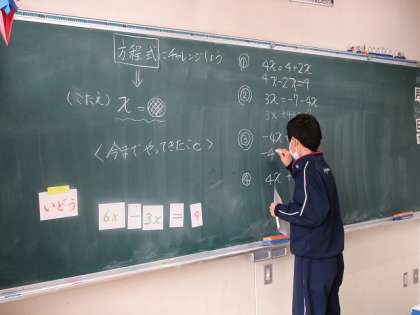 方程式にチャレンジしよう
(こたえ) x =
<今までやってきたこと>
いどう
6x - 3x = 9
① 4x = 4 + 2x
4x - 2x = 4
② 3x = -7 - 4x
3x + 4x
③ -4x
-4
④ 4x